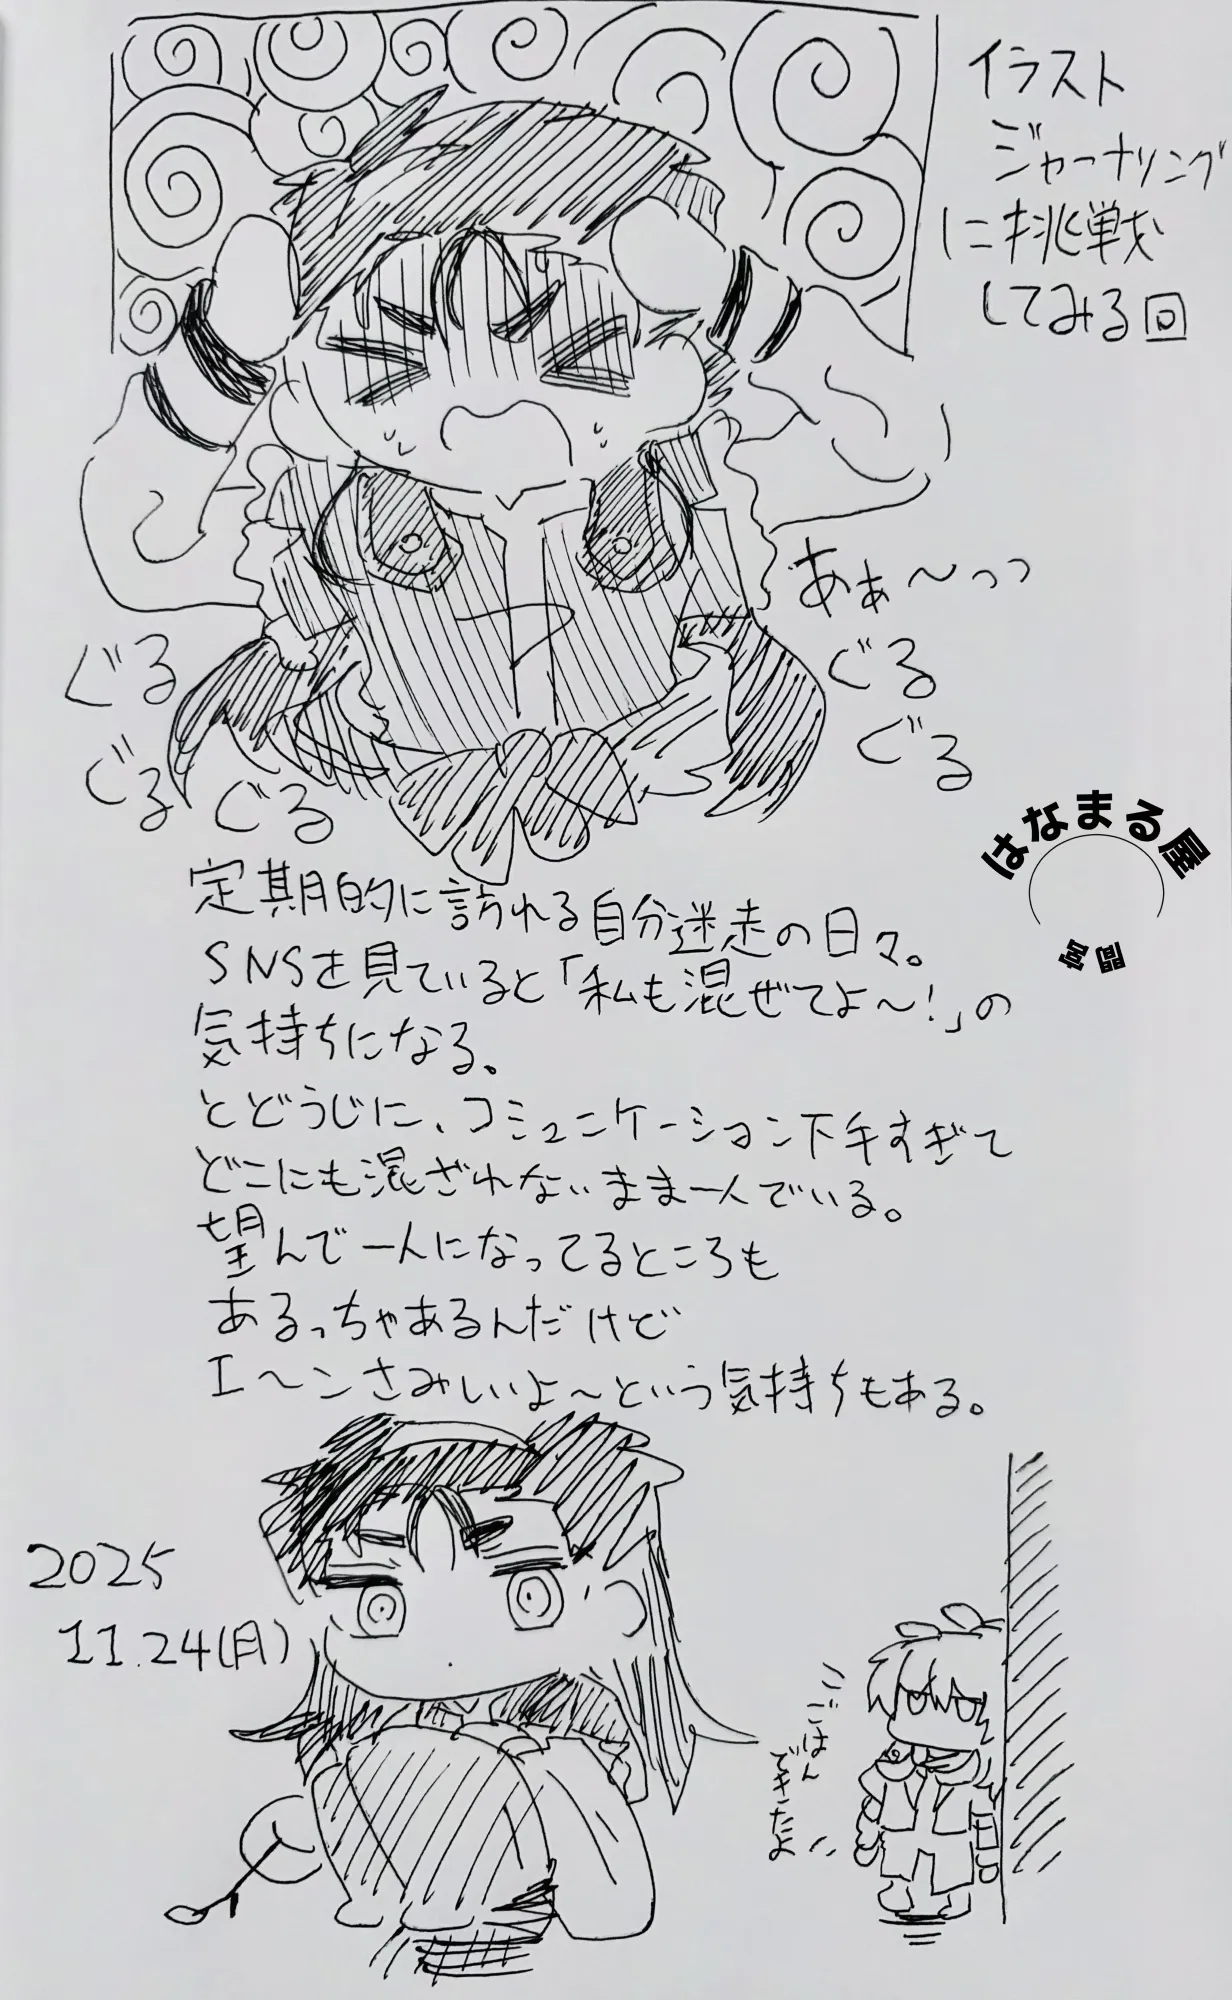 イラスト
ジャーナリング
に挑戦
してみる回
あぁ〜っっ
ぐる
ぐる
ぐる
ぐる
ぐる
はなまる屋
宮間
定期的に訪れる自分迷走の日々。
SNSを見ていると「私も混ぜてよ〜!」の
気持ちになる。
とどうじに、コミュニケーション下手すぎて
どこにも混ざれないまま一人でいる。
望んで一人になってるところも
あるっちゃあるんだけど
エ〜ンさみしいよ〜という気持ちもある。
2025
11.24(月)
ごはん
できたよ